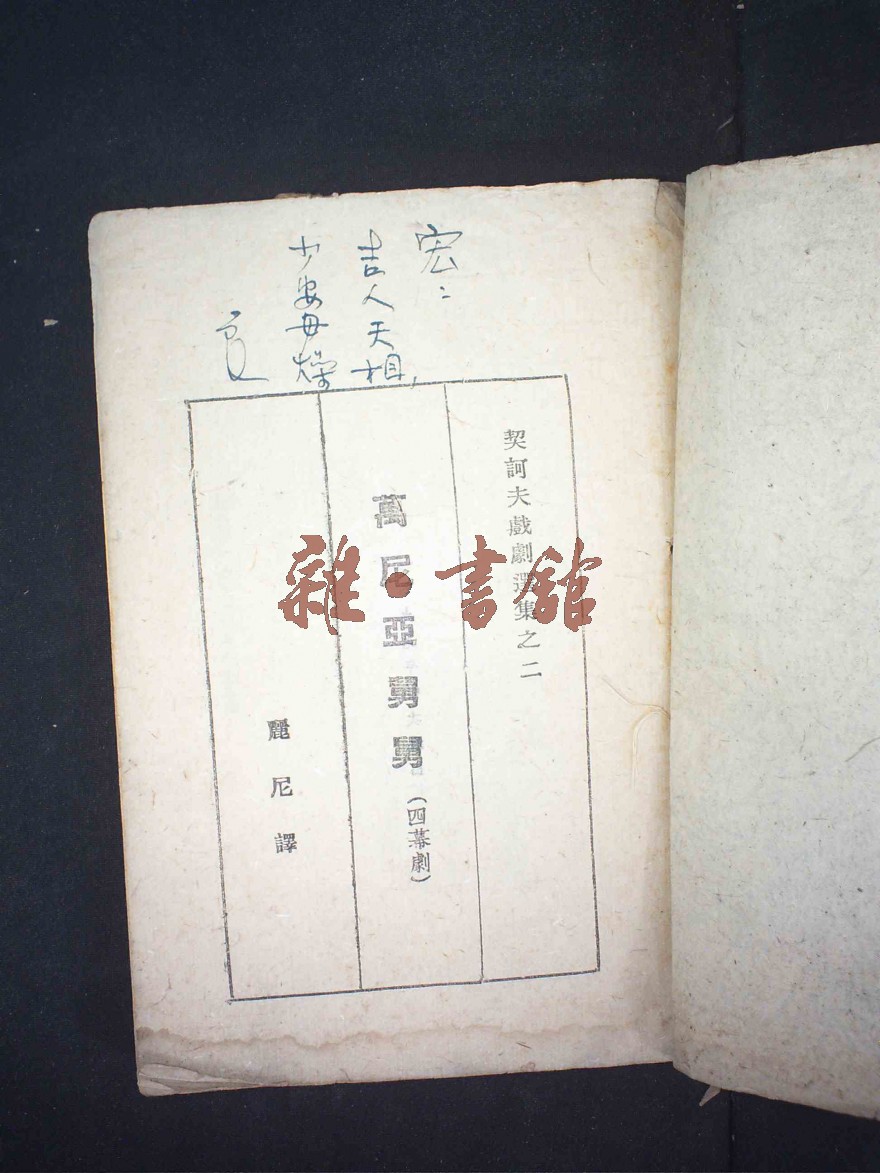 宏：
吉人天相，
少安毋燥
契訶夫戲劇選集之二
萬尼亞舅舅
（四幕劇）
麗尼譯
雜·書舘